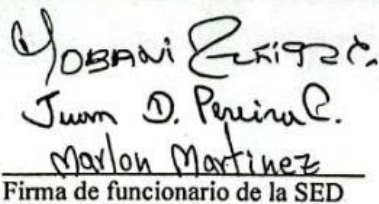 Yobani Zuñiga C.
Juan D. Pereira C.
Marlon Martinez
Firma de funcionario de la SED